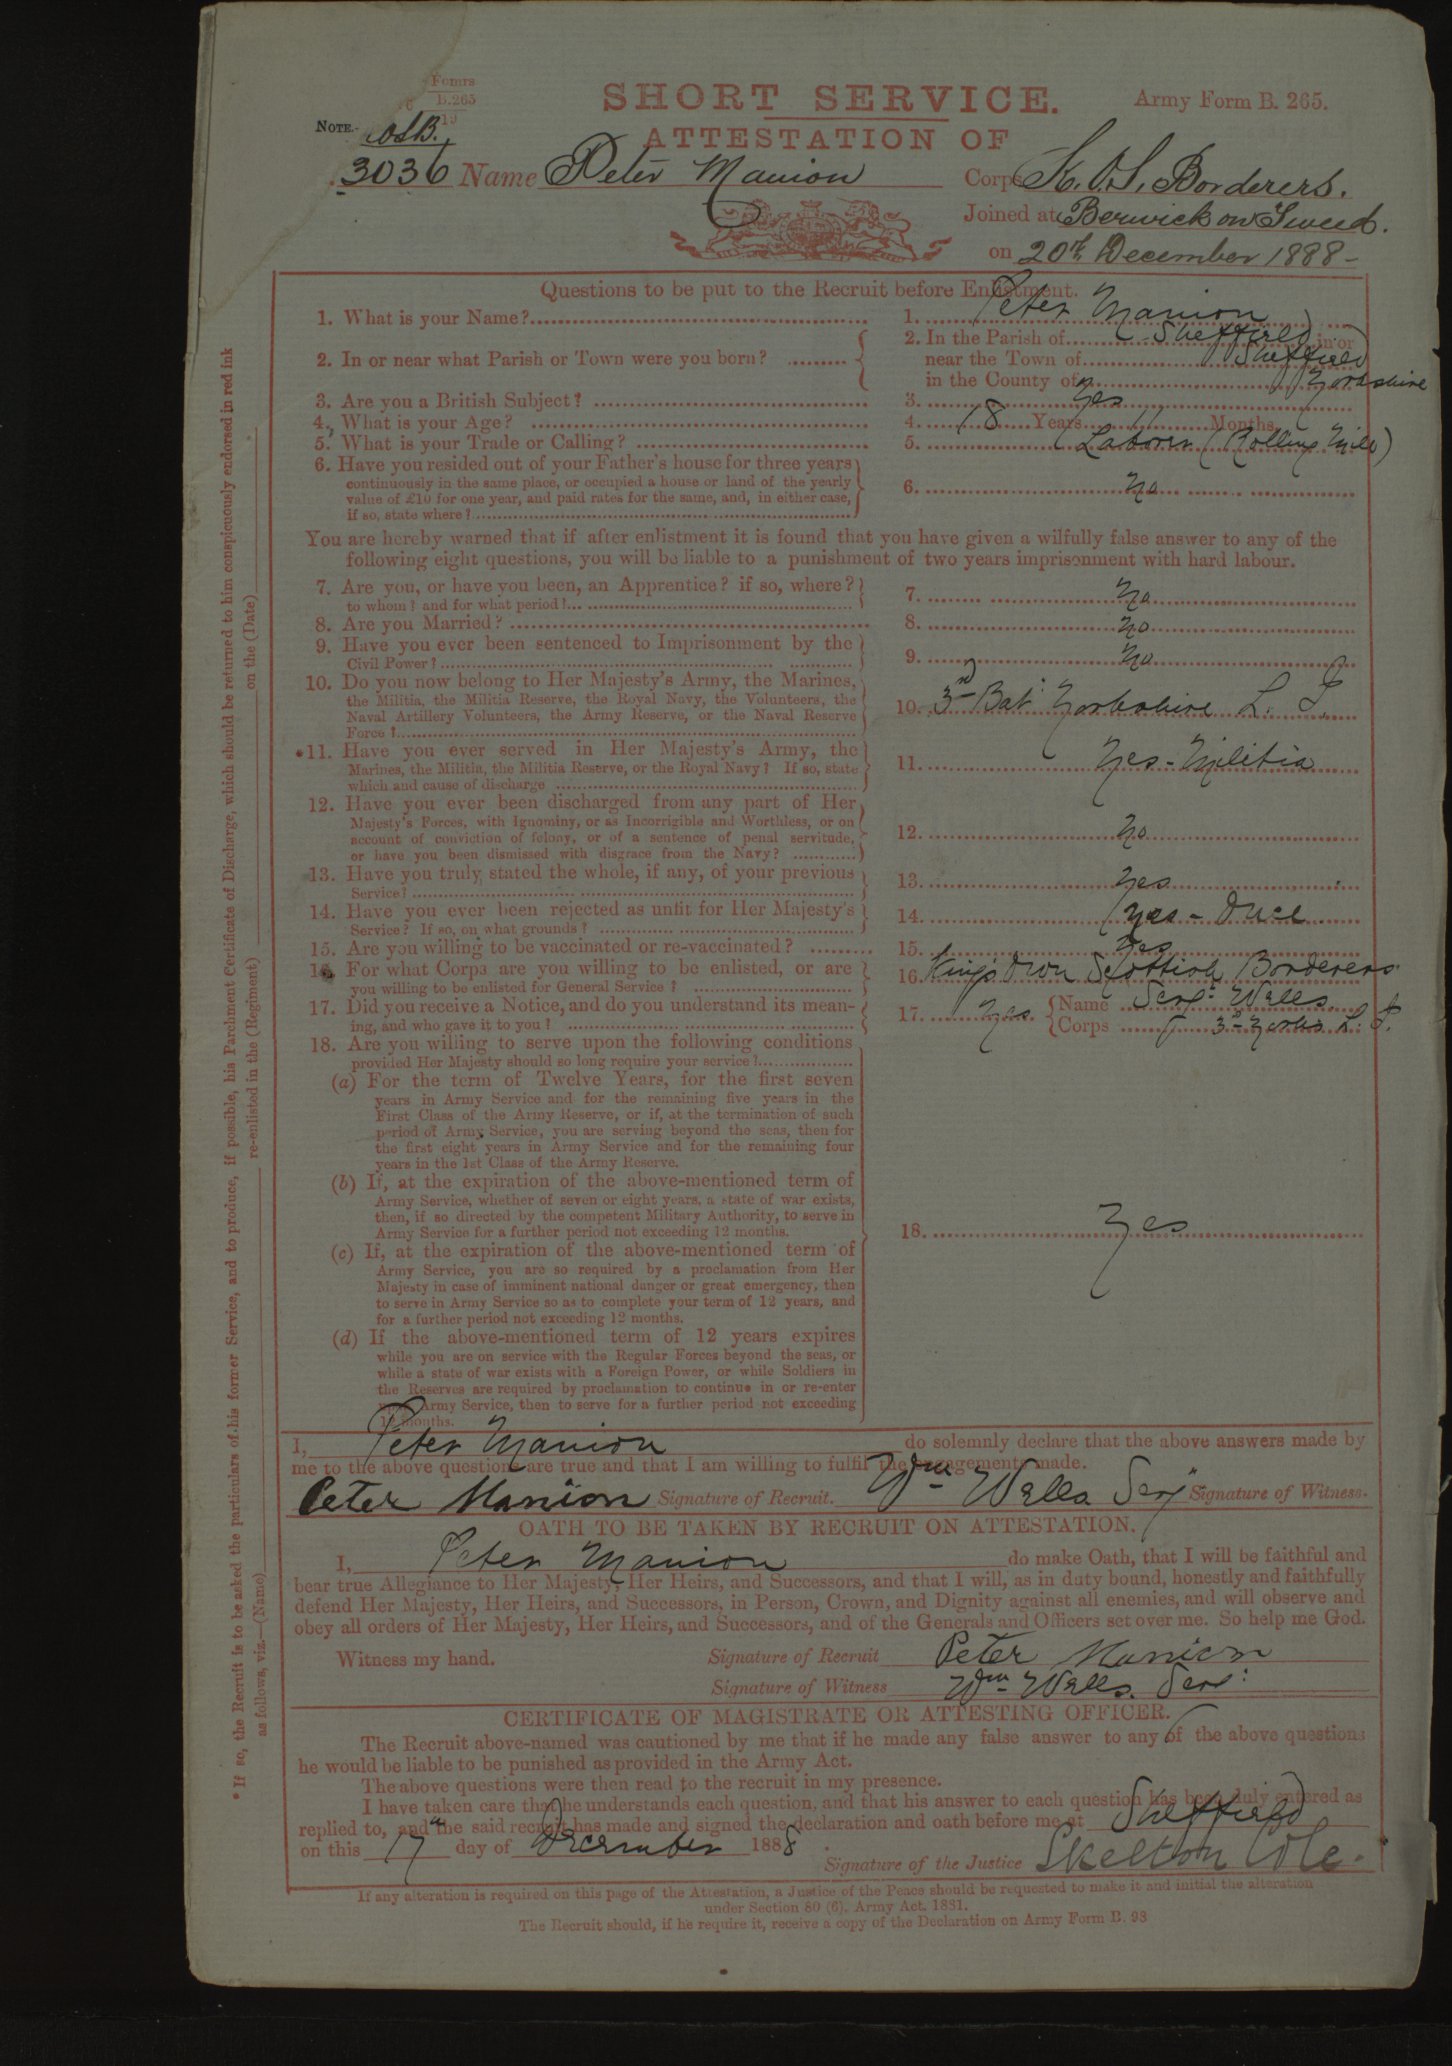 Forms
B.265
SHORT SERVICE.
Army Form B. 265.
NOTE.-
OSB.
ATTESTATION OF
3036 Name Peter Manion
Corps K. O. S. Borderers.
Joined at Berwick on Tweed.
on 20th December 1888-
Questions to be put to the Recruit before Enlistment.
1. What is your Name?
1. Peter Manion
2. In or near what Parish or Town were you born?
2. In the Parish of Sheffield in or
near the Town of Sheffield
in the County of Yorkshire
3. Are you a British Subject?
3. Yes
4. What is your Age?
4. 18 Years 11 Months
5. What is your Trade or Calling?
5. Laborer (Rolling Mill)
6. Have you resided out of your Father's house for three years
continuously in the same place, or occupied a house or land of the yearly
value of £10 for one year, and paid rates for the same, and, in either case,
if so, state where?
6. No
You are hereby warned that if after enlistment it is found that you have given a wilfully false answer to any of the
following eight questions, you will be liable to a punishment of two years imprisonment with hard labour.
7. Are you, or have you been, an Apprentice? if so, where?
to whom? and for what period?
7. No
8. Are you Married?
8. No
9. Have you ever been sentenced to Imprisonment by the
Civil Power?
9. No
10. Do you now belong to Her Majesty's Army, the Marines,
the Militia, the Militia Reserve, the Royal Navy, the Volunteers, the
Naval Artillery Volunteers, the Army Reserve, or the Naval Reserve
Force?
10. 3rd Bat. Yorkshire L. I.
*11. Have you ever served in Her Majesty's Army, the
Marines, the Militia, the Militia Reserve, or the Royal Navy? If so, state
which and cause of discharge
11. Yes - Militia
12. Have you ever been discharged from any part of Her
Majesty's Forces, with Ignominy, or as Incorrigible and Worthless, or on
account of conviction of felony, or of a sentence of penal servitude,
or have you been dismissed with disgrace from the Navy?
12. No
13. Have you truly stated the whole, if any, of your previous
Service?
13. Yes
14. Have you ever been rejected as unfit for Her Majesty's
Service? If so, on what grounds?
14. Yes - Once
15. Are you willing to be vaccinated or re-vaccinated?
15. Yes
16. For what Corps are you willing to be enlisted, or are
you willing to be enlisted for General Service?
16. Kings Own Scottish Borderers
17. Did you receive a Notice, and do you understand its mean-
ing, and who gave it to you?
17. Yes Name Serjt Wells
Corps 3rd Yorks L. I.
18. Are you willing to serve upon the following conditions
provided Her Majesty should so long require your service?
(a) For the term of Twelve Years, for the first seven
years in Army Service and for the remaining five years in the
First Class of the Army Reserve, or if, at the termination of such
period of Army Service, you are serving beyond the seas, then for
the first eight years in Army Service and for the remaining four
years in the 1st Class of the Army Reserve.
(b) If, at the expiration of the above-mentioned term of
Army Service, whether of seven or eight years, a state of war exists,
then, if so directed by the competent Military Authority, to serve in
Army Service for a further period not exceeding 12 months.
(c) If, at the expiration of the above-mentioned term of
Army Service, you are so required by a proclamation from Her
Majesty in case of imminent national danger or great emergency, then
to serve in Army Service so as to complete your term of 12 years, and
for a further period not exceeding 12 months.
(d) If the above-mentioned term of 12 years expires
while you are on service with the Regular Forces beyond the seas, or
while a state of war exists with a Foreign Power, or while Soldiers in
the Reserves are required by proclamation to continue in or re-enter
Army Service, then to serve for a further period not exceeding
12 months.
18. Yes
I, Peter Manion do solemnly declare that the above answers made by
me to the above questions are true and that I am willing to fulfil the engagements made.
Peter Manion Signature of Recruit. Wm Wells Serjt Signature of Witness.
OATH TO BE TAKEN BY RECRUIT ON ATTESTATION.
I, Peter Manion do make Oath, that I will be faithful and
bear true Allegiance to Her Majesty, Her Heirs, and Successors, and that I will, as in duty bound, honestly and faithfully
defend Her Majesty, Her Heirs, and Successors, in Person, Crown, and Dignity against all enemies, and will observe and
obey all orders of Her Majesty, Her Heirs, and Successors, and of the Generals and Officers set over me. So help me God.
Witness my hand. Signature of Recruit Peter Manion
Signature of Witness Wm Wells. Serj:
CERTIFICATE OF MAGISTRATE OR ATTESTING OFFICER.
The Recruit above-named was cautioned by me that if he made any false answer to any of the above questions
he would be liable to be punished as provided in the Army Act.
The above questions were then read to the recruit in my presence.
I have taken care that he understands each question, and that his answer to each question has been duly entered as
replied to, and the said recruit has made and signed the declaration and oath before me at Sheffield
on this 17th day of December 1888.
Signature of the Justice Skelton Cole.
If any alteration is required on this page of the Attestation, a Justice of the Peace should be requested to make it and initial the alteration
under Section 80 (6), Army Act, 1881.
The Recruit should, if he require it, receive a copy of the Declaration on Army Form B. 93
* If so, the Recruit is to be asked the particulars of his former Service, and to produce, if possible, his Parchment Certificate of Discharge, which should be returned to him conspicuously endorsed in red ink
as follows, viz.—(Name) re-enlisted in the (Regiment) on the (Date)